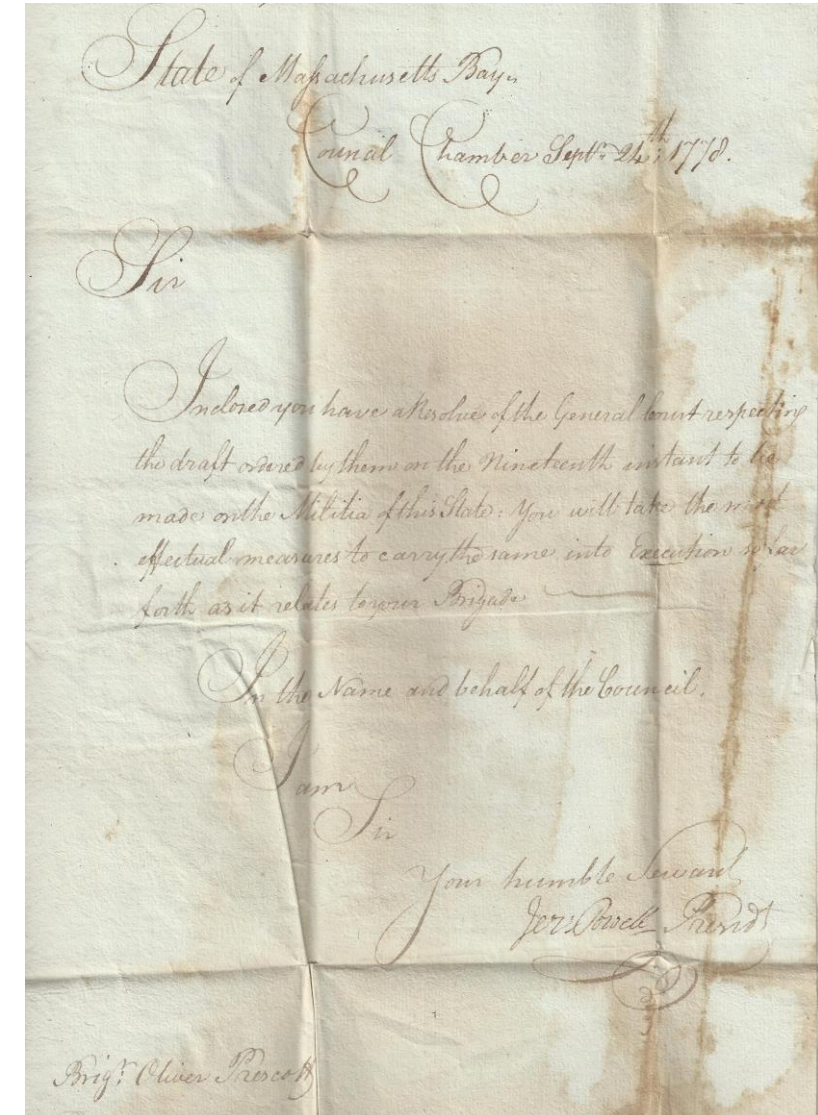 State of Massachusetts Bay
Council Chamber Septr. 24th; 1778.
Sir
Inclosed you have a Resolve of the General Court respecting
the draft ordered by them on the Nineteenth instant to be
made on the Militia of this State: You will take the most
effectual measures to carry the same into Execution so far
forth as it relates to your Brigade
In the Name and behalf of the Council.
I am
Sir
Your humble Servant
Jer: Powell Presidt
Brigr. Oliver Prescott